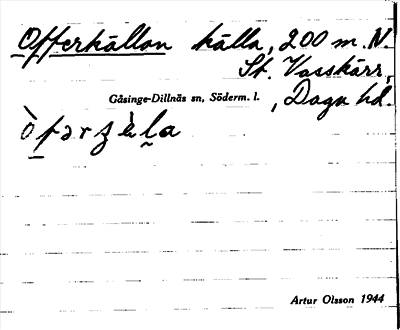 Offerkällan källa, 200 m. N.
St. Vasskärr,
Gåsinge-Dillnäs sn, Söderm. l., Daga hd.
Artur Olsson 1944